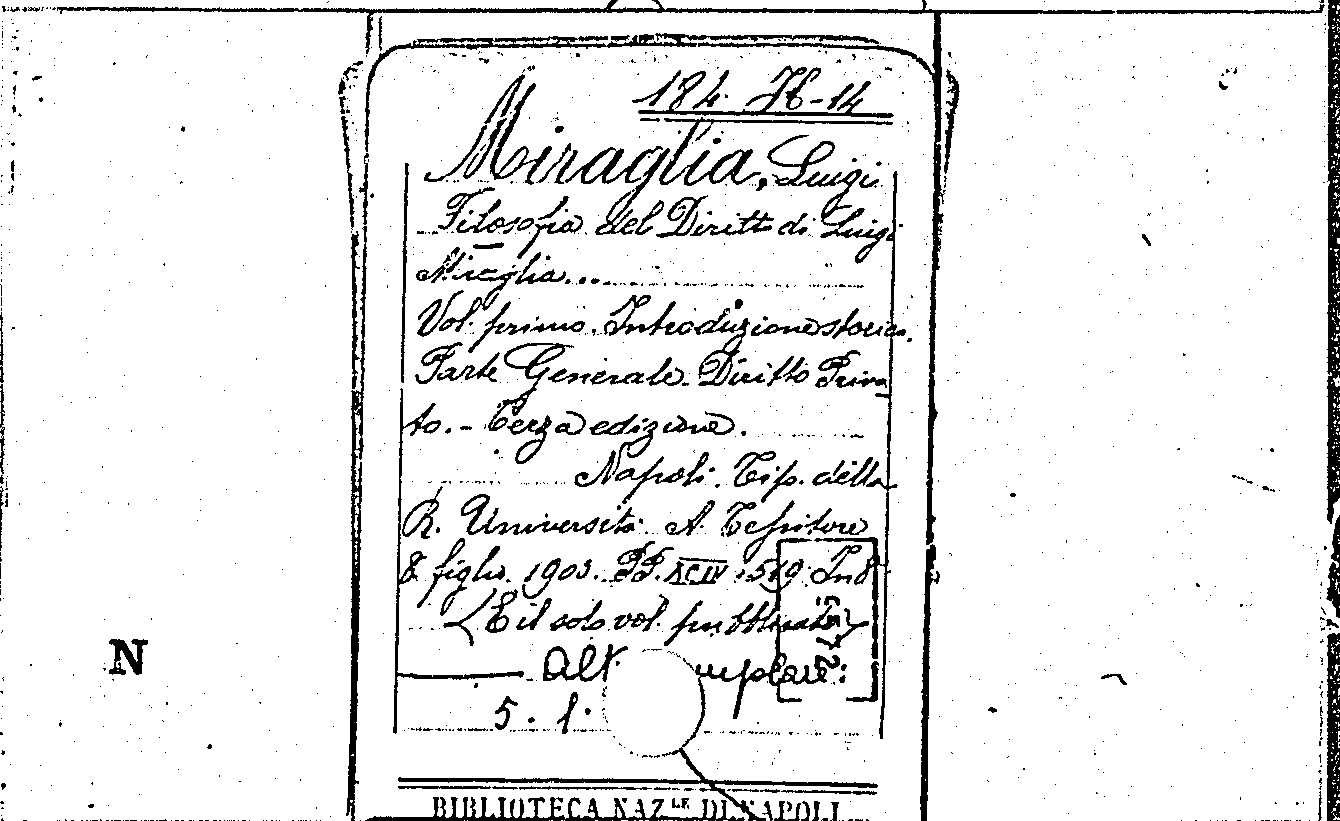 184. H-14
Miraglia, Luigi
Filosofia del Diritto di Luigi
Miraglia...
Vol. primo. Introduzione storica.
Parte Generale. Diritto Priva
to. - Terza edizione.
Napoli. Tip. della
R. Università A. Tessitore
& figlio. 1903. PP. XCIV. 519 In 8
(E il solo vol. pubblicato)
Alt mplare:
5. 1.
N
BIBLIOTECA NAZ.LE DI NAPOLI